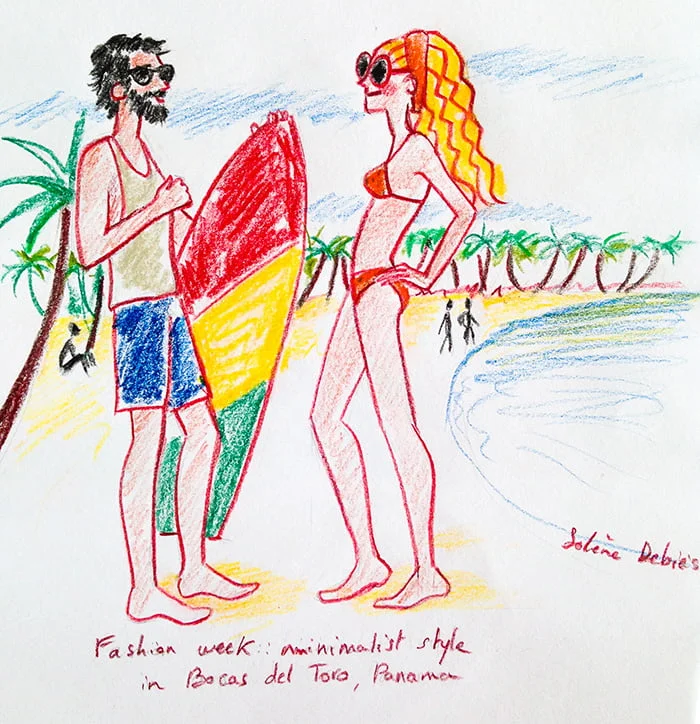 Solène Debiès
Fashion week : minimalist style
in Bocas del Toro, Panama